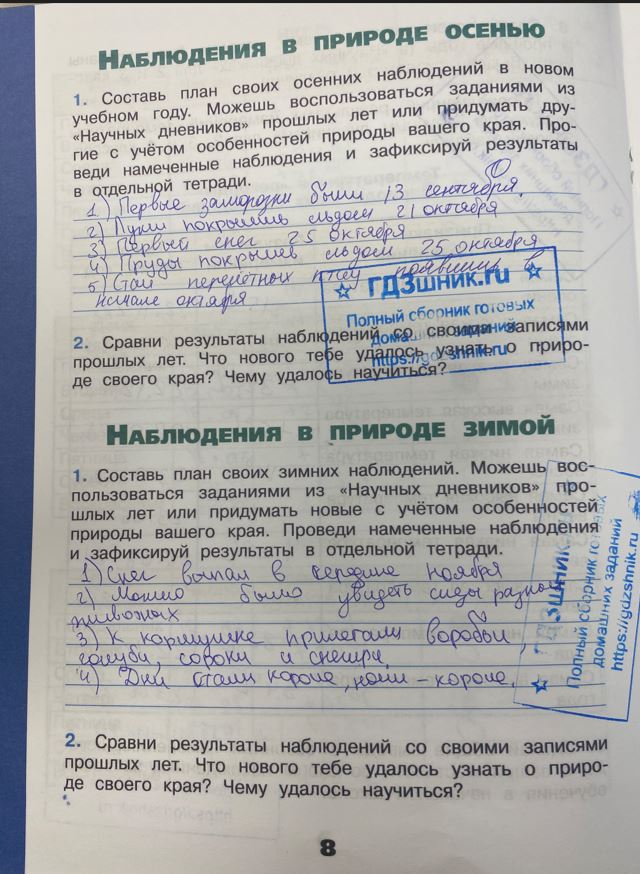 НАБЛЮДЕНИЯ В ПРИРОДЕ ОСЕНЬЮ
1. Составь план своих осенних наблюдений в новом
учебном году. Можешь воспользоваться заданиями из
«Научных дневников» прошлых лет или придумать дру-
гие с учётом особенностей природы вашего края. Про-
веди намеченные наблюдения и зафиксируй результаты
в отдельной тетради.
1) Первые заморозки были 13 сентября.
2) Лужи покрылись льдом 21 октября
3) Первый снег 25 октября
4) Пруды покрылись льдом 25 октября
5) Стаи перелётных птиц появились в
начале октября
ГДЗшник.ru
Полный сборник готовых
домашних заданий
https://gdzshnik.ru
2. Сравни результаты наблюдений со своими записями
прошлых лет. Что нового тебе удалось узнать о приро-
де своего края? Чему удалось научиться?
НАБЛЮДЕНИЯ В ПРИРОДЕ ЗИМОЙ
1. Составь план своих зимних наблюдений. Можешь вос-
пользоваться заданиями из «Научных дневников» про-
шлых лет или придумать новые с учётом особенностей
природы вашего края. Проведи намеченные наблюдения
и зафиксируй результаты в отдельной тетради.
1) Снег выпал в середине ноября
2) Можно было увидеть следы разных
животных
3) К кормушке прилетали воробьи,
голуби, сороки и снегири.
4) Дни стали короче, ночи – короче.
ГДЗшник.ru
Полный сборник готовых
домашних заданий
https://gdzshnik.ru
2. Сравни результаты наблюдений со своими записями
прошлых лет. Что нового тебе удалось узнать о приро-
де своего края? Чему удалось научиться?
8